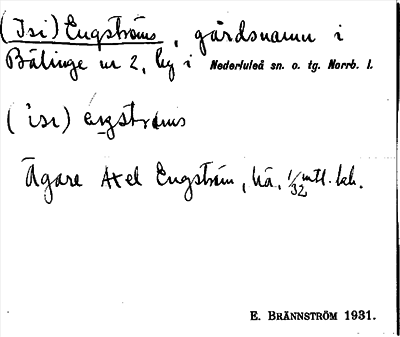 (Isi) Engströms, gårdsnamn i
Bälinge nr 2, by i Nederluleå sn. o. tg. Norrb. l.
(isi) eŋströms
Ägare Axel Engström, hä. 1/32 mtl. kh.
E. BRÄNNSTRÖM 1931.